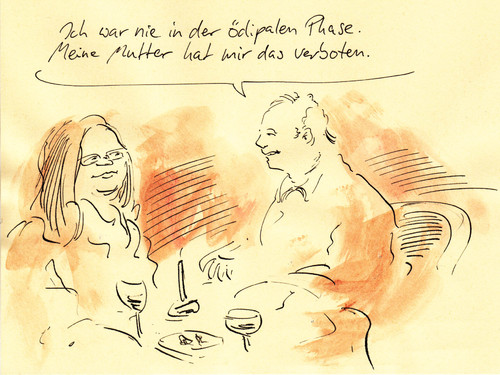 Ich war nie in der ödipalen Phase.
Meine Mutter hat mir das verboten.